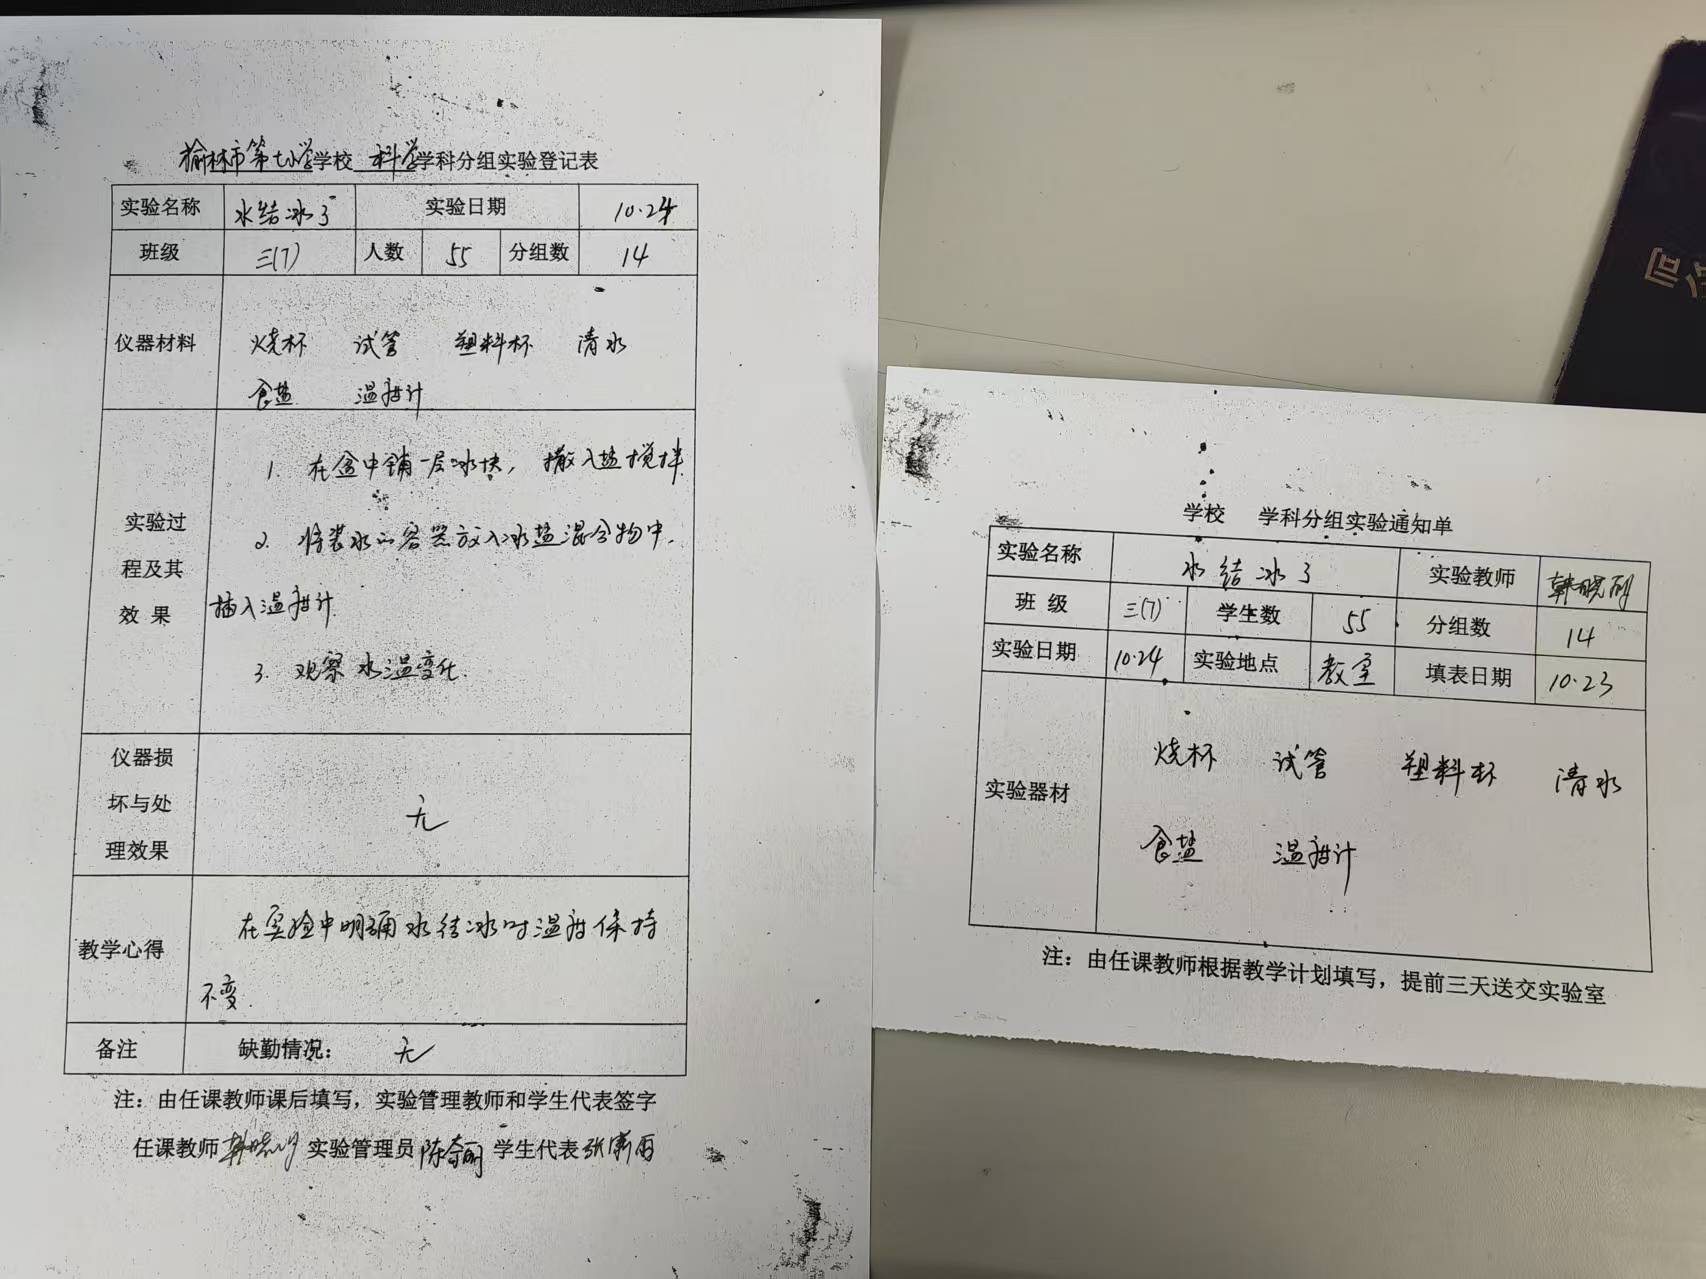 榆林市第七小学学校 科学学科分组实验登记表
实验名称 水结冰了 实验日期 10.24
班级 三(7) 人数 55 分组数 14
仪器材料 烧杯 试管 塑料杯 清水
食盐 温度计
实验过程及其效果
1. 在盒中铺一层冰块，撒入盐搅拌
2. 将装水的容器放入冰盐混合物中，
插入温度计.
3. 观察水温变化.
仪器损坏与处理效果 无
教学心得 在实验中明确水结冰时温度保持
不变.
备注 缺勤情况： 无
注：由任课教师课后填写，实验管理教师和学生代表签字
任课教师 实验管理员 学生代表
学校 学科分组实验通知单
实验名称 水结冰了 实验教师
班 级 三(7) 学生数 55 分组数 14
实验日期 10.24 实验地点 教室 填表日期 10.23
实验器材 烧杯 试管 塑料杯 清水
食盐 温度计
注：由任课教师根据教学计划填写，提前三天送交实验室